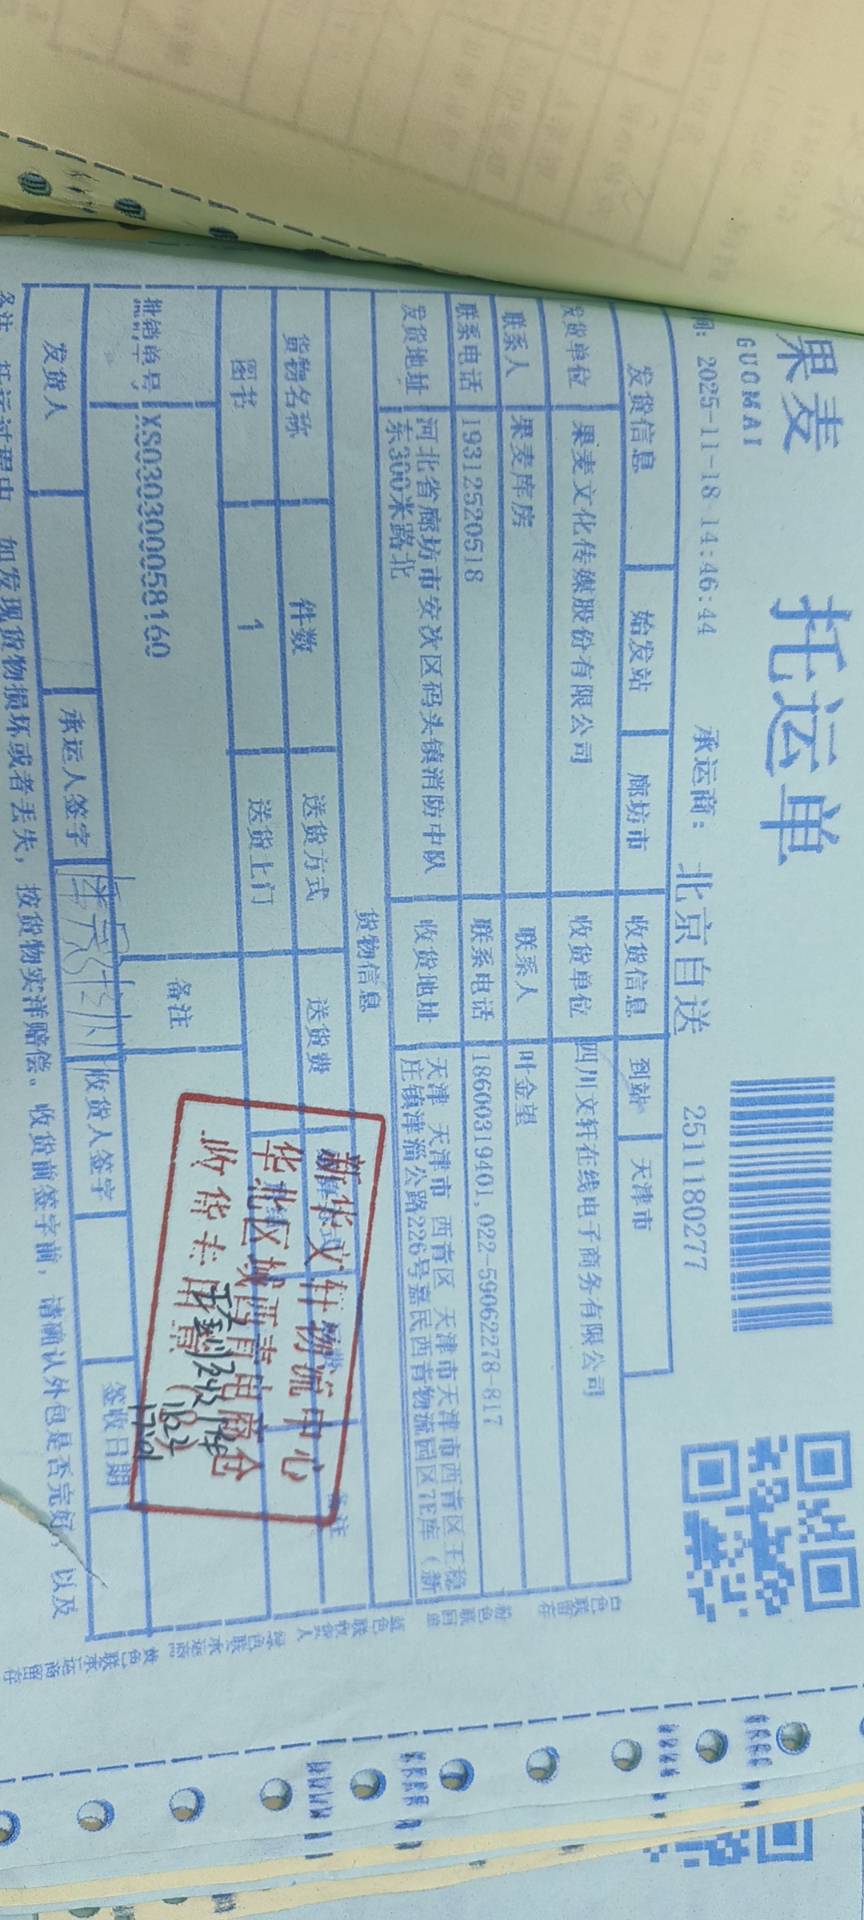 果麦
GUOMAI
托运单
2511180277
间: 2025-11-18 14:46:44 承运商: 北京自送
发货信息 始发站 廊坊市 收货信息 到站 天津市
发货单位 果麦文化传媒股份有限公司 收货单位 四川文轩在线电子商务有限公司
联系人 果麦库房 联系人 叶金望
联系电话 19312520518 联系电话 18600319401,022-59062278-817
发货地址 河北省廊坊市安次区码头镇消防中队
东300米路北
收货地址 天津 天津市 西青区 天津市天津市西青区王稳
庄镇津淄公路226号嘉民西青物流园区7E库(新
货物信息
货物名称 件数 送货方式 送货费 备注
图书 1 送货上门
批销单号 XS0303000058160 备注
新华文轩物流中心
华北区域西青电商仓
收货专用章
发货人 承运人签字 收货人签字 签收日期
备注 托运过程中, 如发现货物损坏或者丢失, 按货物实洋赔偿。收货前签字前, 请确认外包是否完好, 以及
白色联留存
粉色联回单
蓝色联收货人
绿色联承运商
黄色联承运商留存